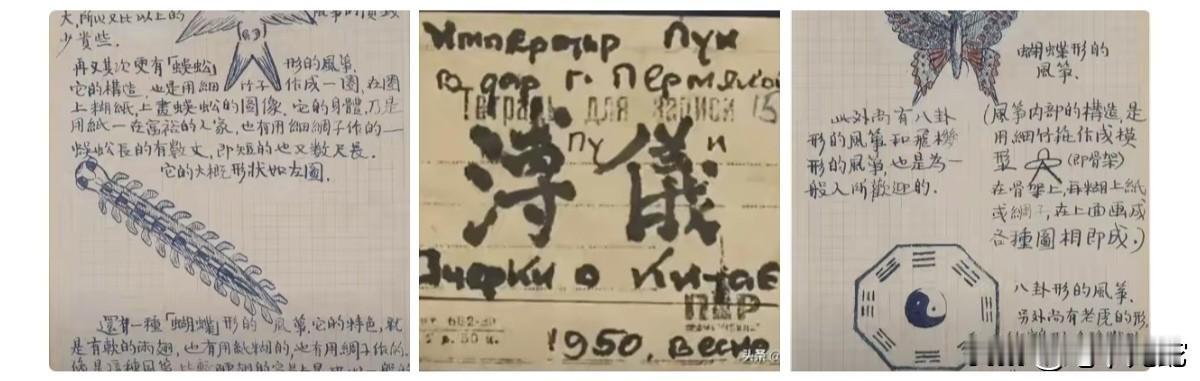 大,所以又比以上的
少貴些.
再又其次更有「蜈蚣」形的風箏.
它的構造,也是用細竹子作成一圈,在圈
上糊紙,上畫蜈蚣的圖像.它的身體,乃是
用紙—在富裕的人家,也有用細綢子作的—
蜈蚣長的有數丈,即短的也又數尺長.
它的大概形狀如左圖.
還有一種「蝴蝶」形的風箏,它的特色,就
是有軟的兩翅,也有用紙糊的,也有用綢子作的.
Император Пуи
в дар г. Пермякой
Тетрадь для записи 15
Пу и
溥儀
Очерки о Китае
1950, весна
头条@
蝴蝶形的
風箏.
此外尚有八卦
形的風箏和飛機
形的風箏,也是為一
般人所歡迎的.
(風箏內部的構造,是
用細竹作成模
型 (即骨架)
在骨架上,再糊上紙
或綢子,在上面画成
各種圖相即成.)
八卦形的風箏.
另外尚有老虎的形